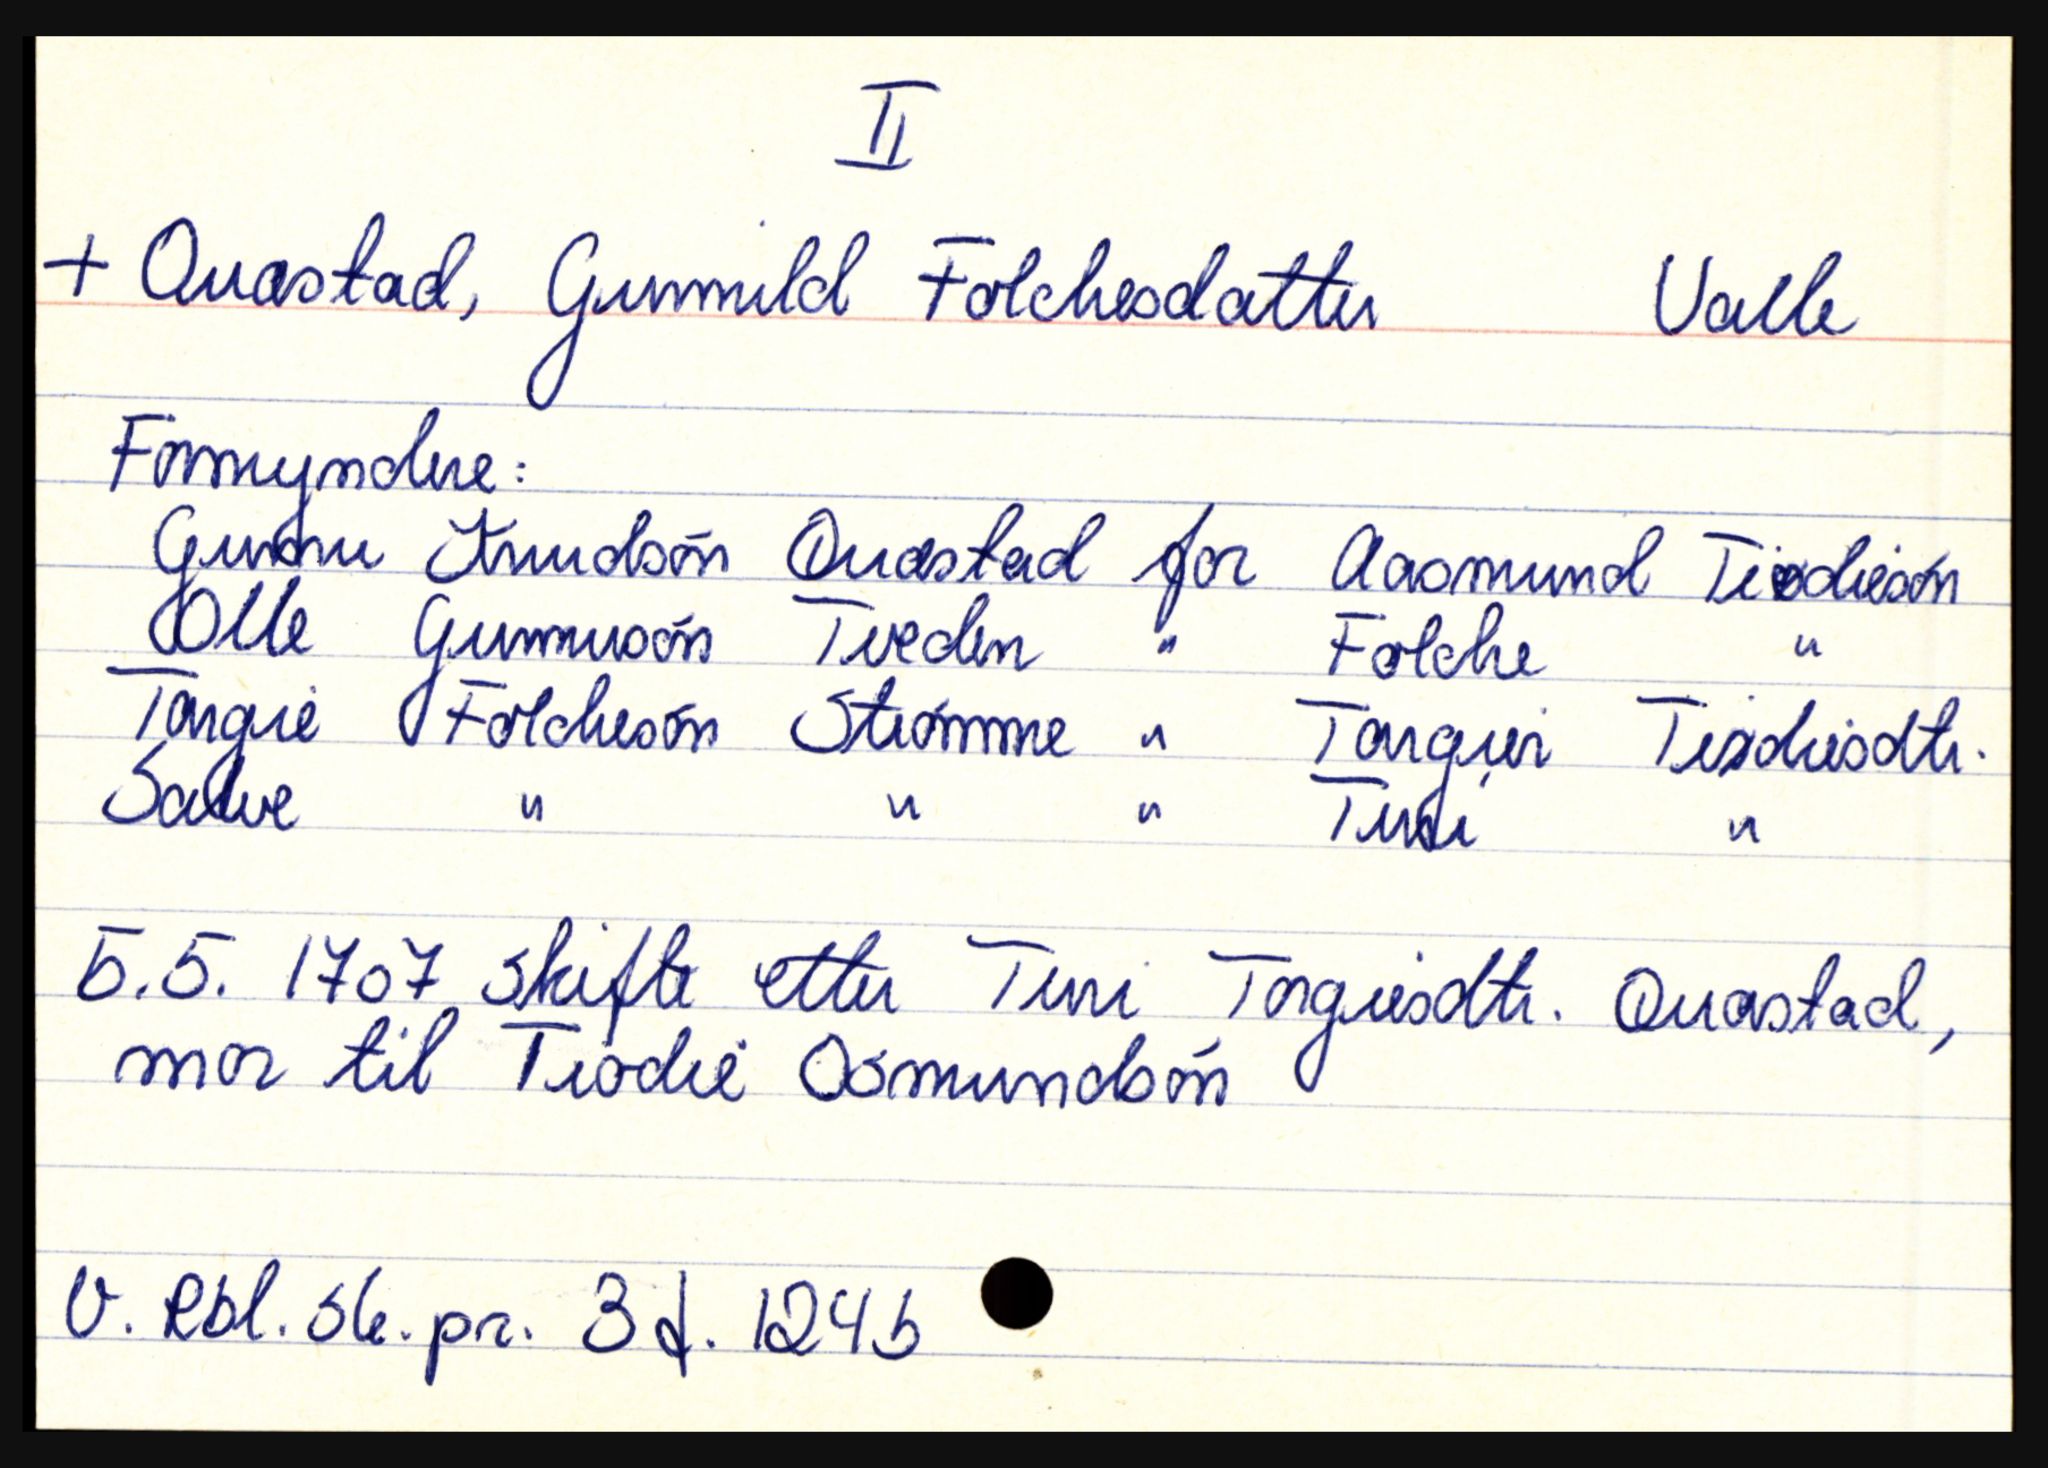 II
+ Quastad, Gunnild Folchesdatter Valle
Formyndere:
Gunnu Knudsón Quastad for Aasmund Tiodiesón
Olle Gunnusón Tveden " Folche "
Torgie Folchesón Strömme " Torguer Tiodiesdtr.
Salve " " " Turi "
5.5. 1707 skifte etter Turi Torgiesdtr. Quastad,
mor til Tiodie Osmundsón
V. Rbl. sk. pr. 3 f. 124b